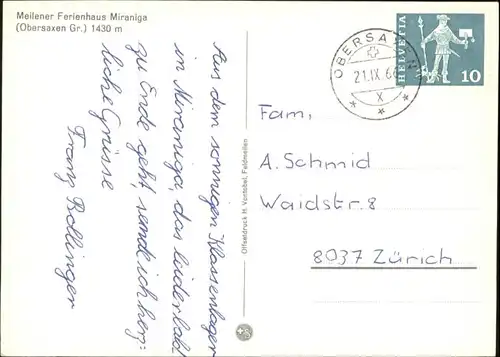 Meilener Ferienhaus Miraniga
(Obersaxen Gr.) 1430 m
Aus dem sonnigen Klassenlager
im Miraniga, das leider bald
zu Ende geht, sende ich herz-
liche Grüsse
Franz Bollinger
Offsetdruck H. Vontobel, Feldmeilen
OBERSAXEN
21.IX.66
X
HELVETIA
10
Fam,
A. Schmid
Waidstr. 8
8037 Zürich